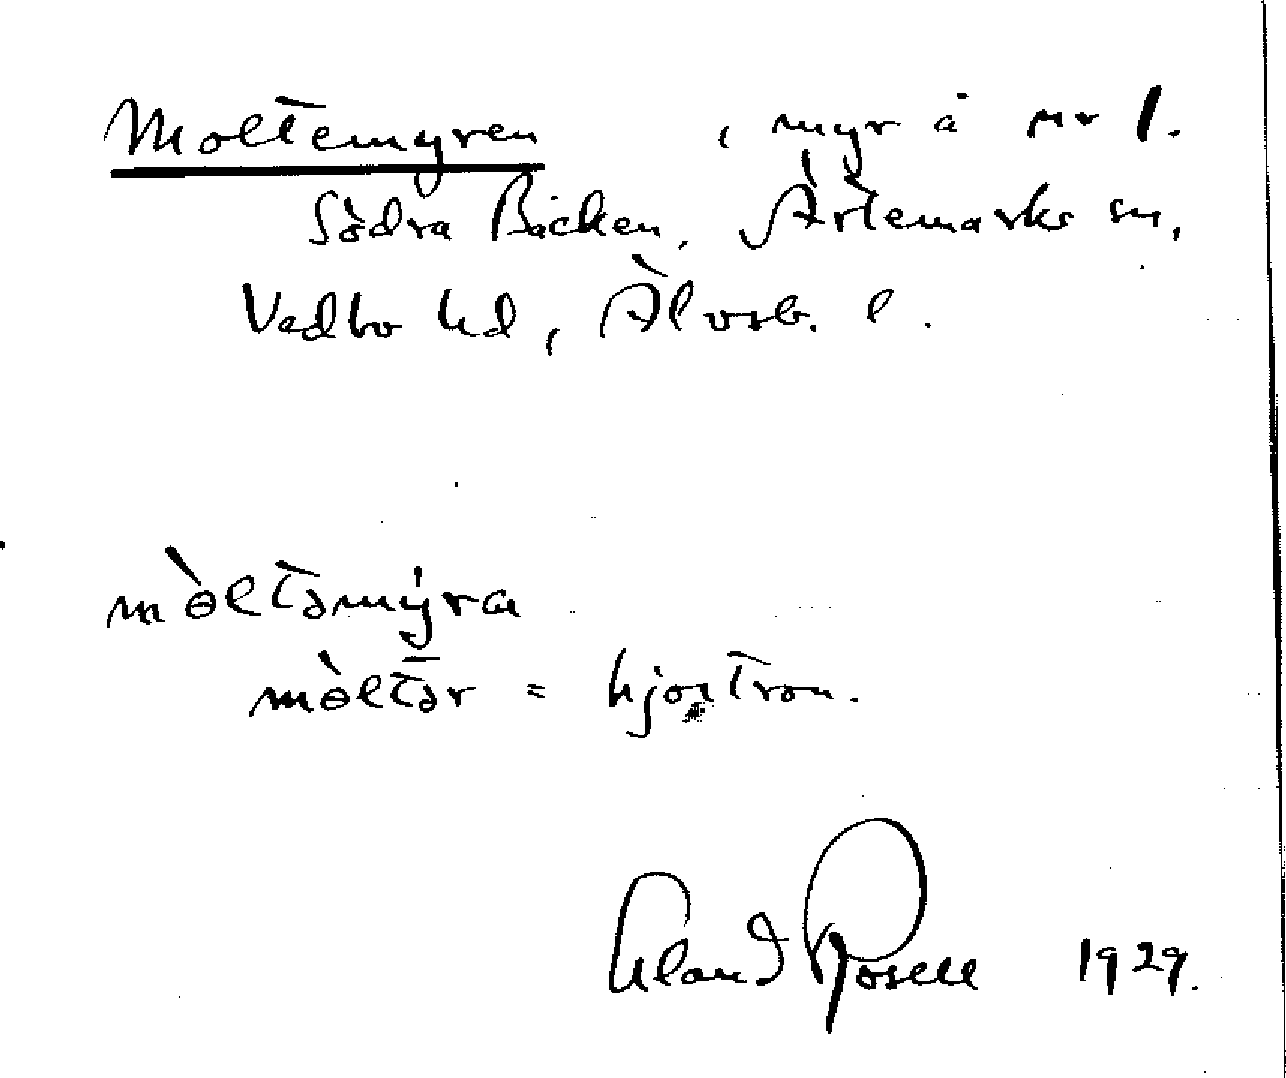 Moltemyren, myr å nr 1.
Södra Bäcken, Ärtemarks sn,
Vedbo hd, Älvsb. l.
mòltəmy̆ra
mòltər = hjortron.
Erland Rosell 1929.